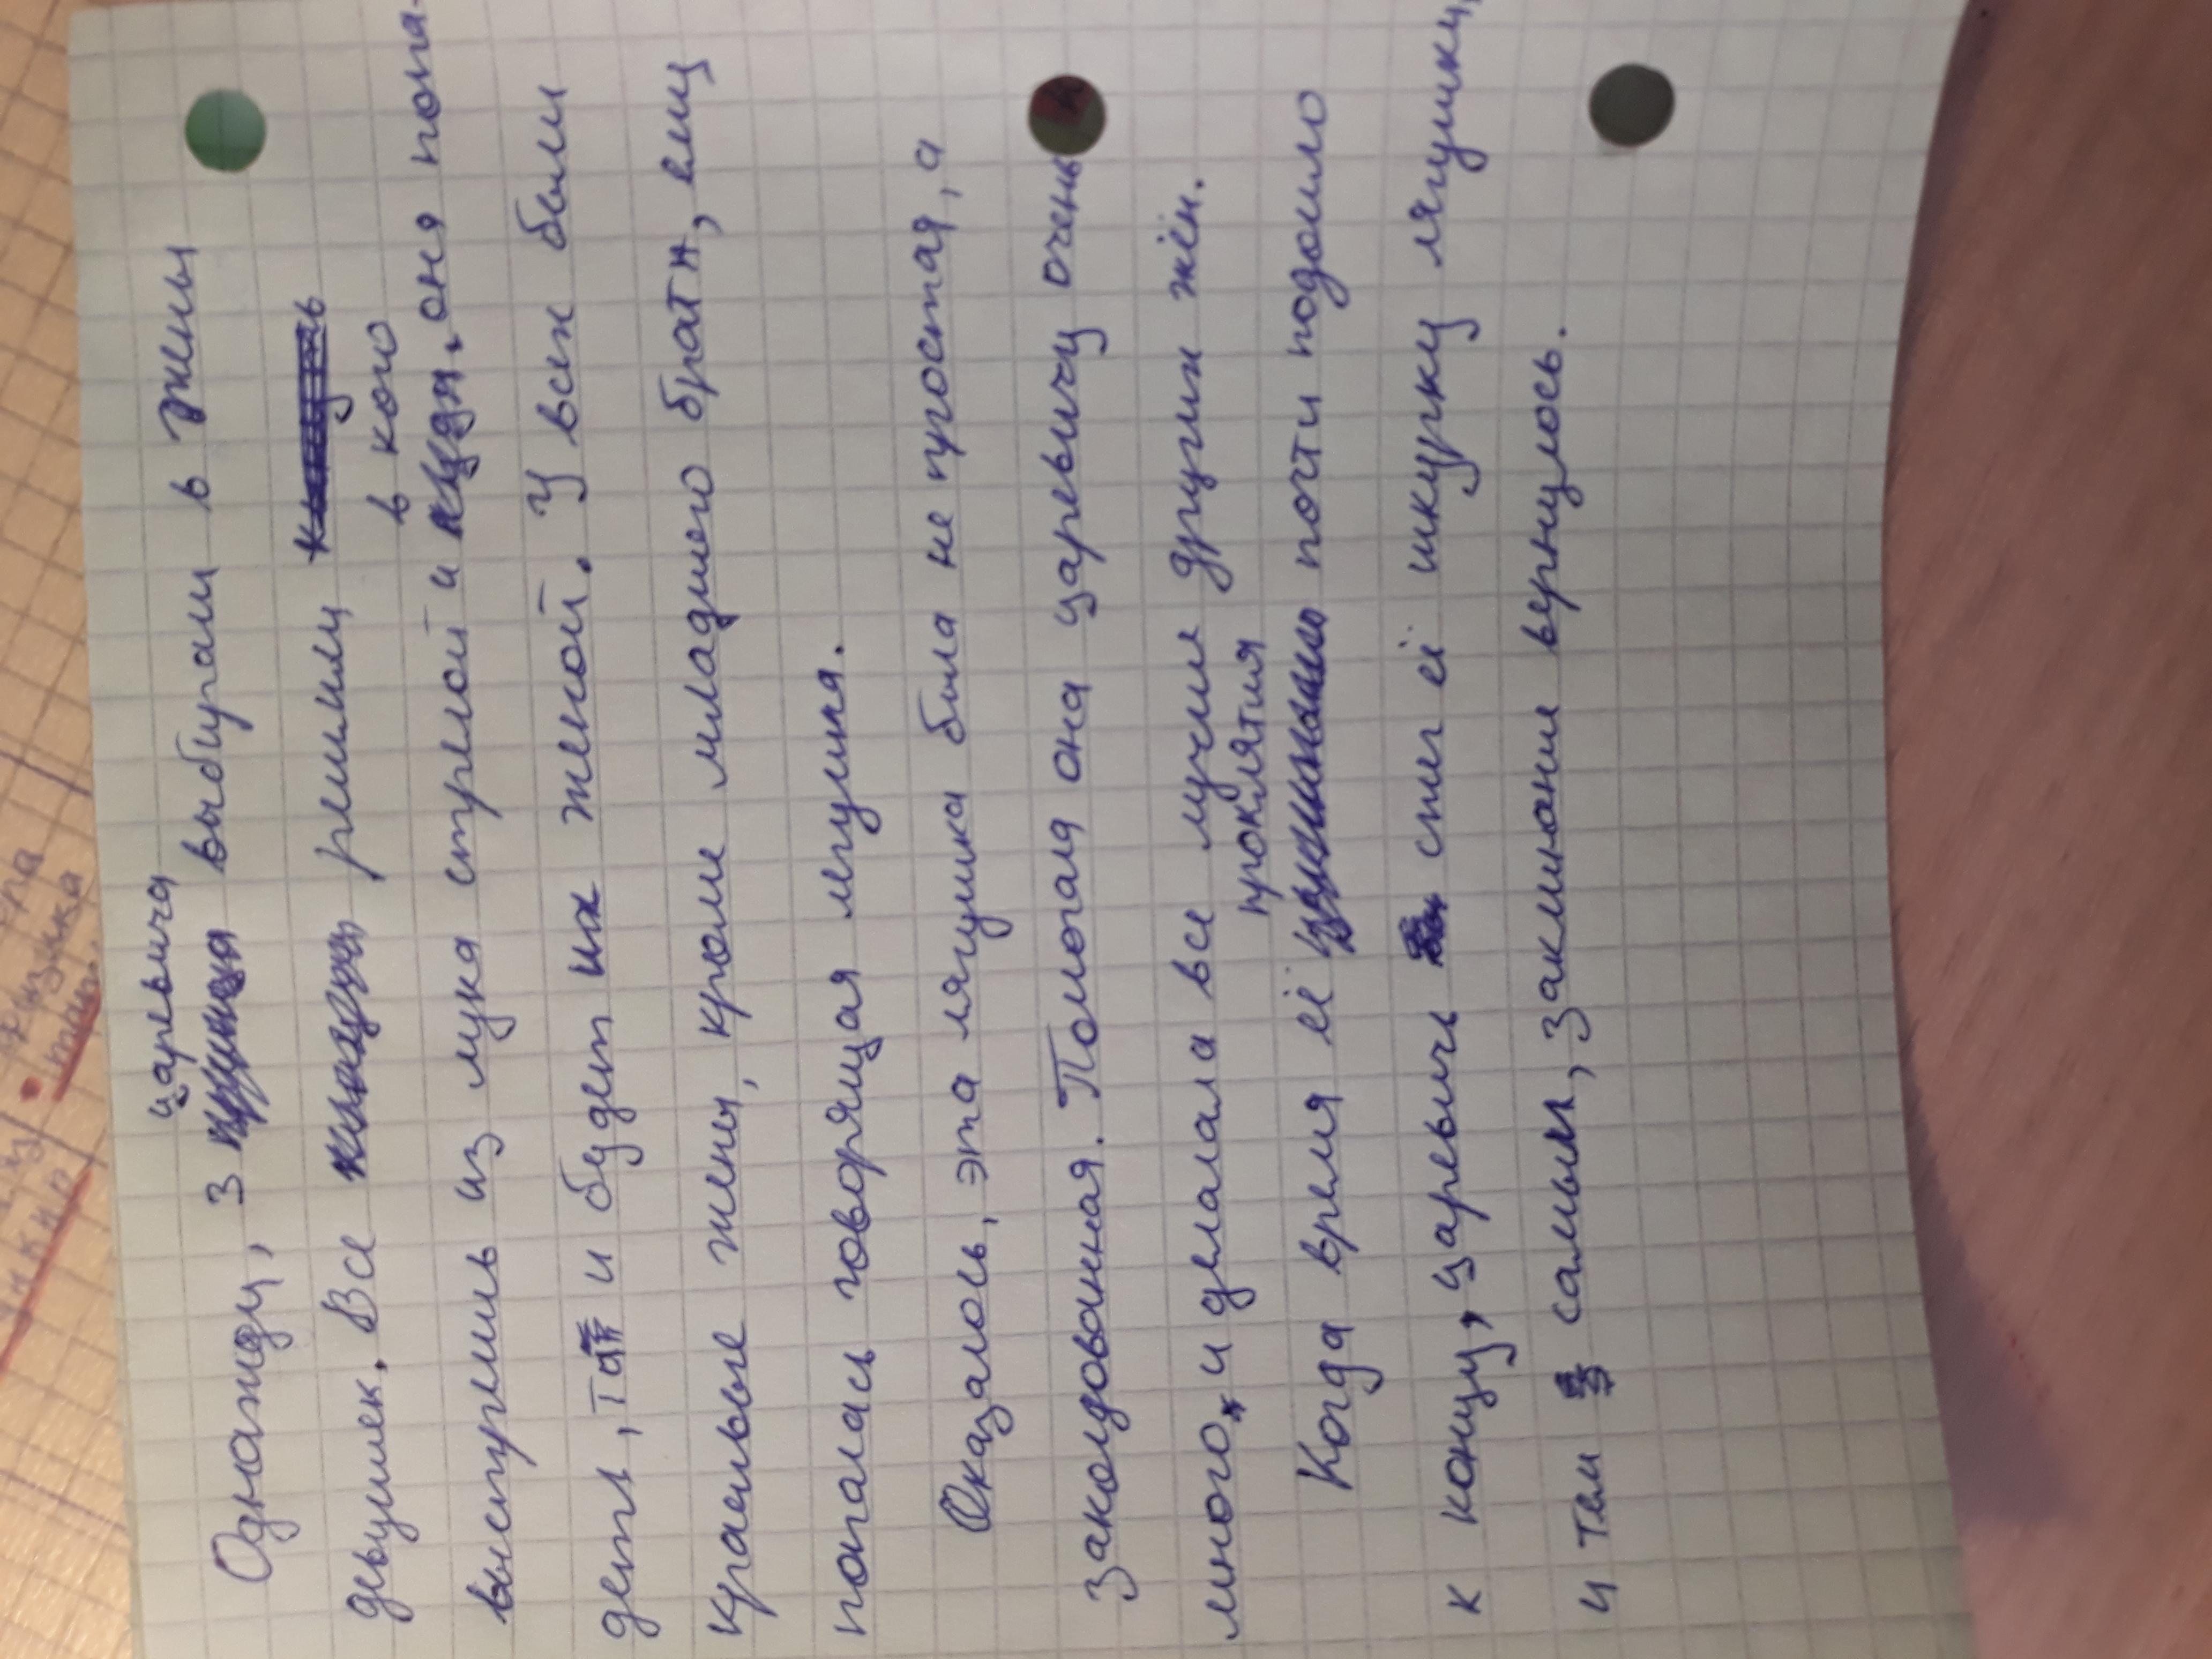 Однажды, 3 царевича выбирали в жены
девушек. Все решили
выстрелить из лука стрелой и в кого она попа-
дет, та и будет их женой. У всех были
красивые жены, кроме младшего брата, ему
попалась говорящая лягушка.
Оказалось, эта лягушка была не простая, а
заколдованная. Помогала она царевичу очень
много и делала все лучше других жён.
Когда время её проклятия почти подошло
к концу, царевич сжег её шкурку лягушки,
и тем самым, заклинание вернулось.